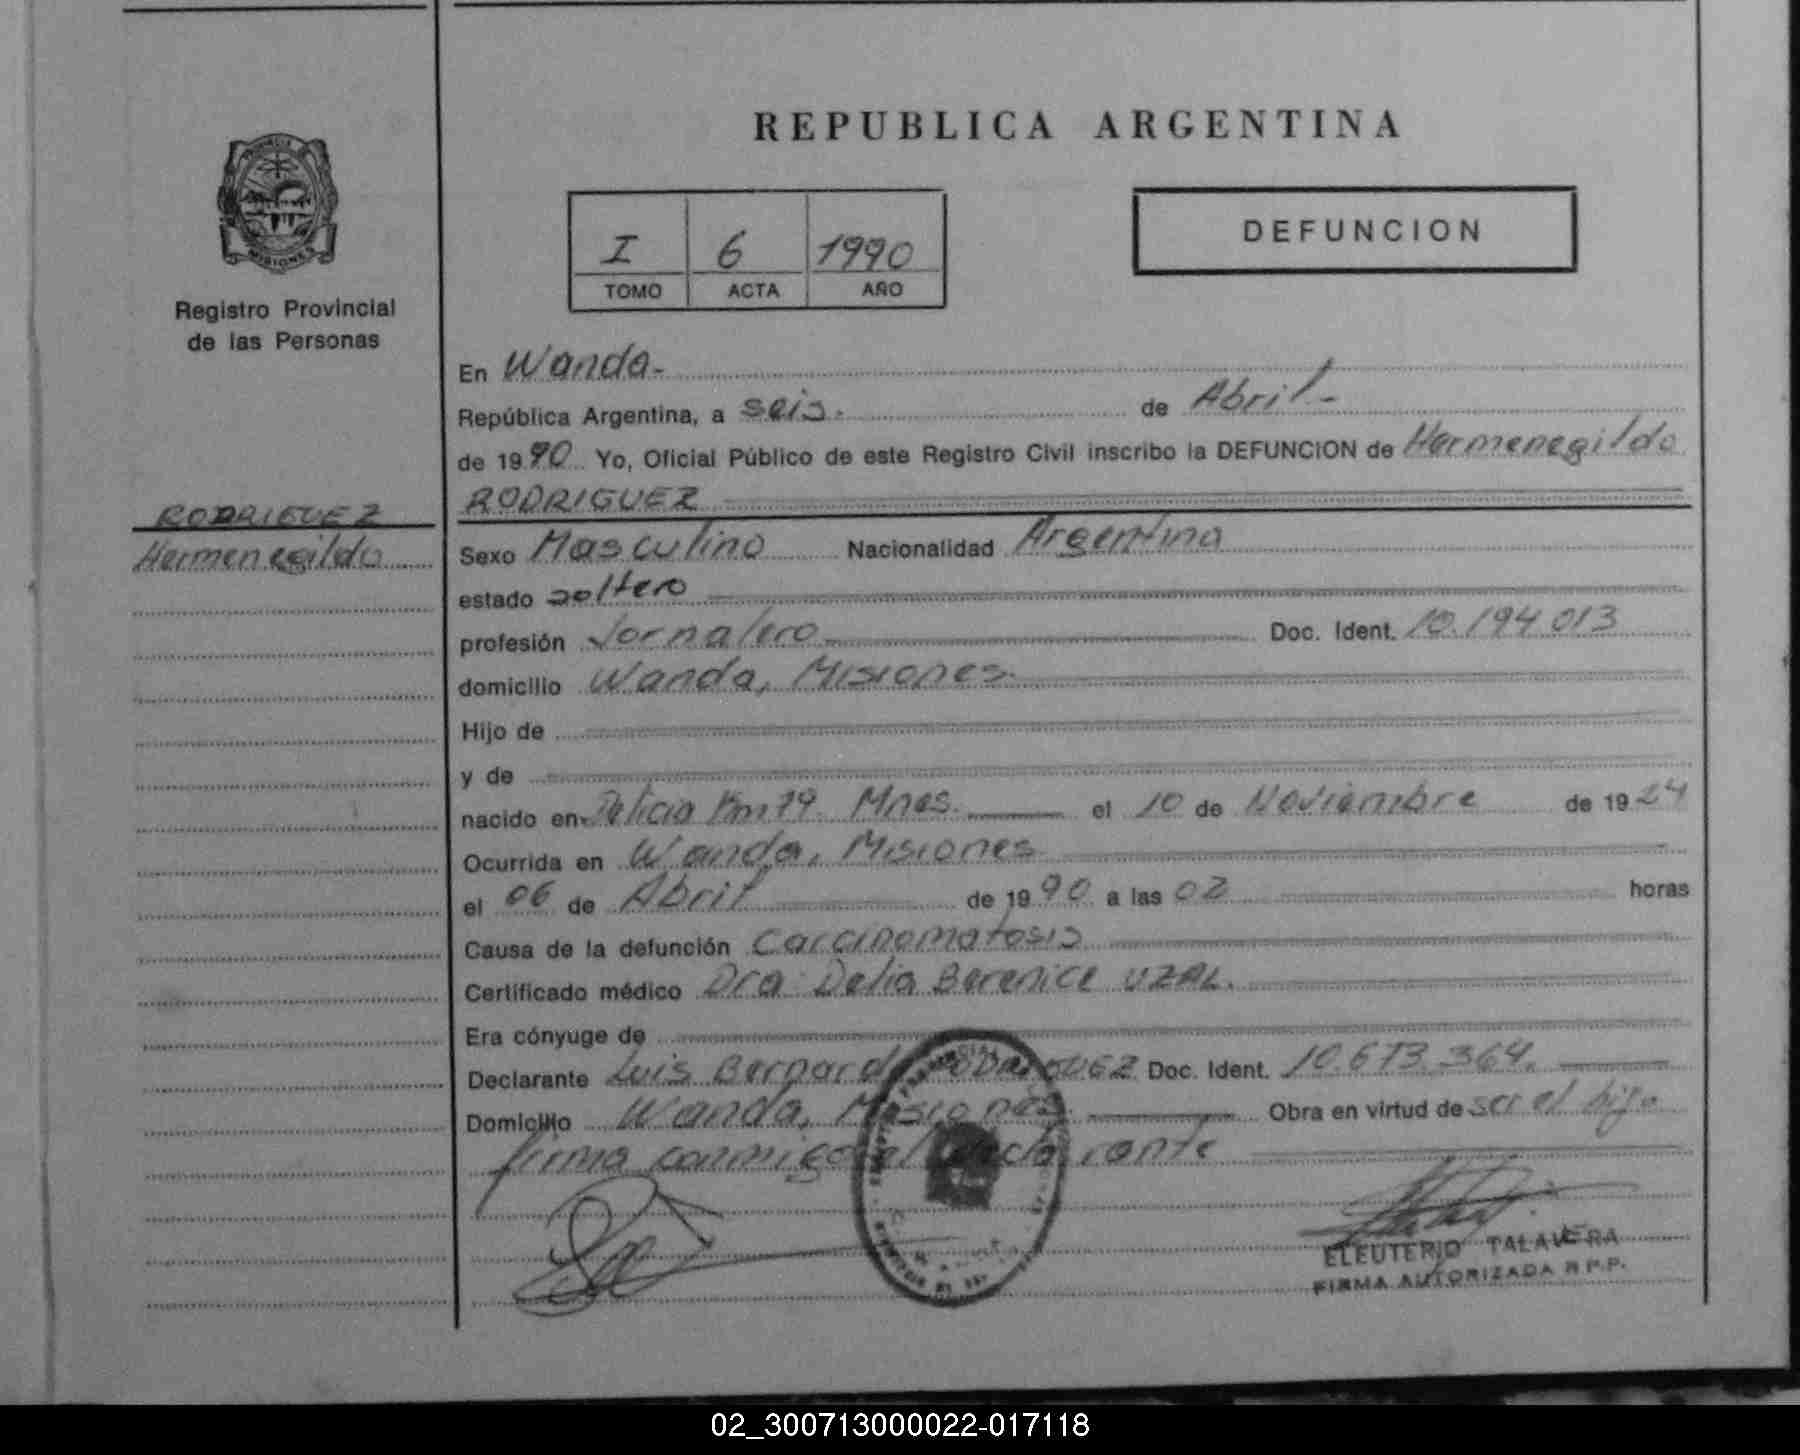 REPUBLICA ARGENTINA
DEFUNCION
I 6 1990
TOMO ACTA AÑO
MISIONES
Registro Provincial
de las Personas
RODRIGUEZ
Hermenegildo
En Wanda.
República Argentina, a seis. de Abril
de 1990 Yo, Oficial Público de este Registro Civil inscribo la DEFUNCION de Hermenegildo
RODRIGUEZ
Sexo Masculino Nacionalidad Argentina
estado soltero
profesión Jornalero Doc. Ident. 10.194.013
domicilio Wanda, Misiones
Hijo de
y de
nacido en Delicia Km 19. Mnes. el 10 de Noviembre de 1924
Ocurrida en Wanda, Misiones
el 06 de Abril de 1990 a las 02 horas
Causa de la defunción Carcinomatosis
Certificado médico Dra. Delia Berenice UZAL.
Era cónyuge de
Declarante Luis Bernardo RODRIGUEZ Doc. Ident. 10.673.364.
Domicilio Wanda, Misiones Obra en virtud de ser el hijo
firma conmigo el declarante
ELEUTERIO TALAVERA
FIRMA AUTORIZADA R.P.P.
02_300713000022-017118